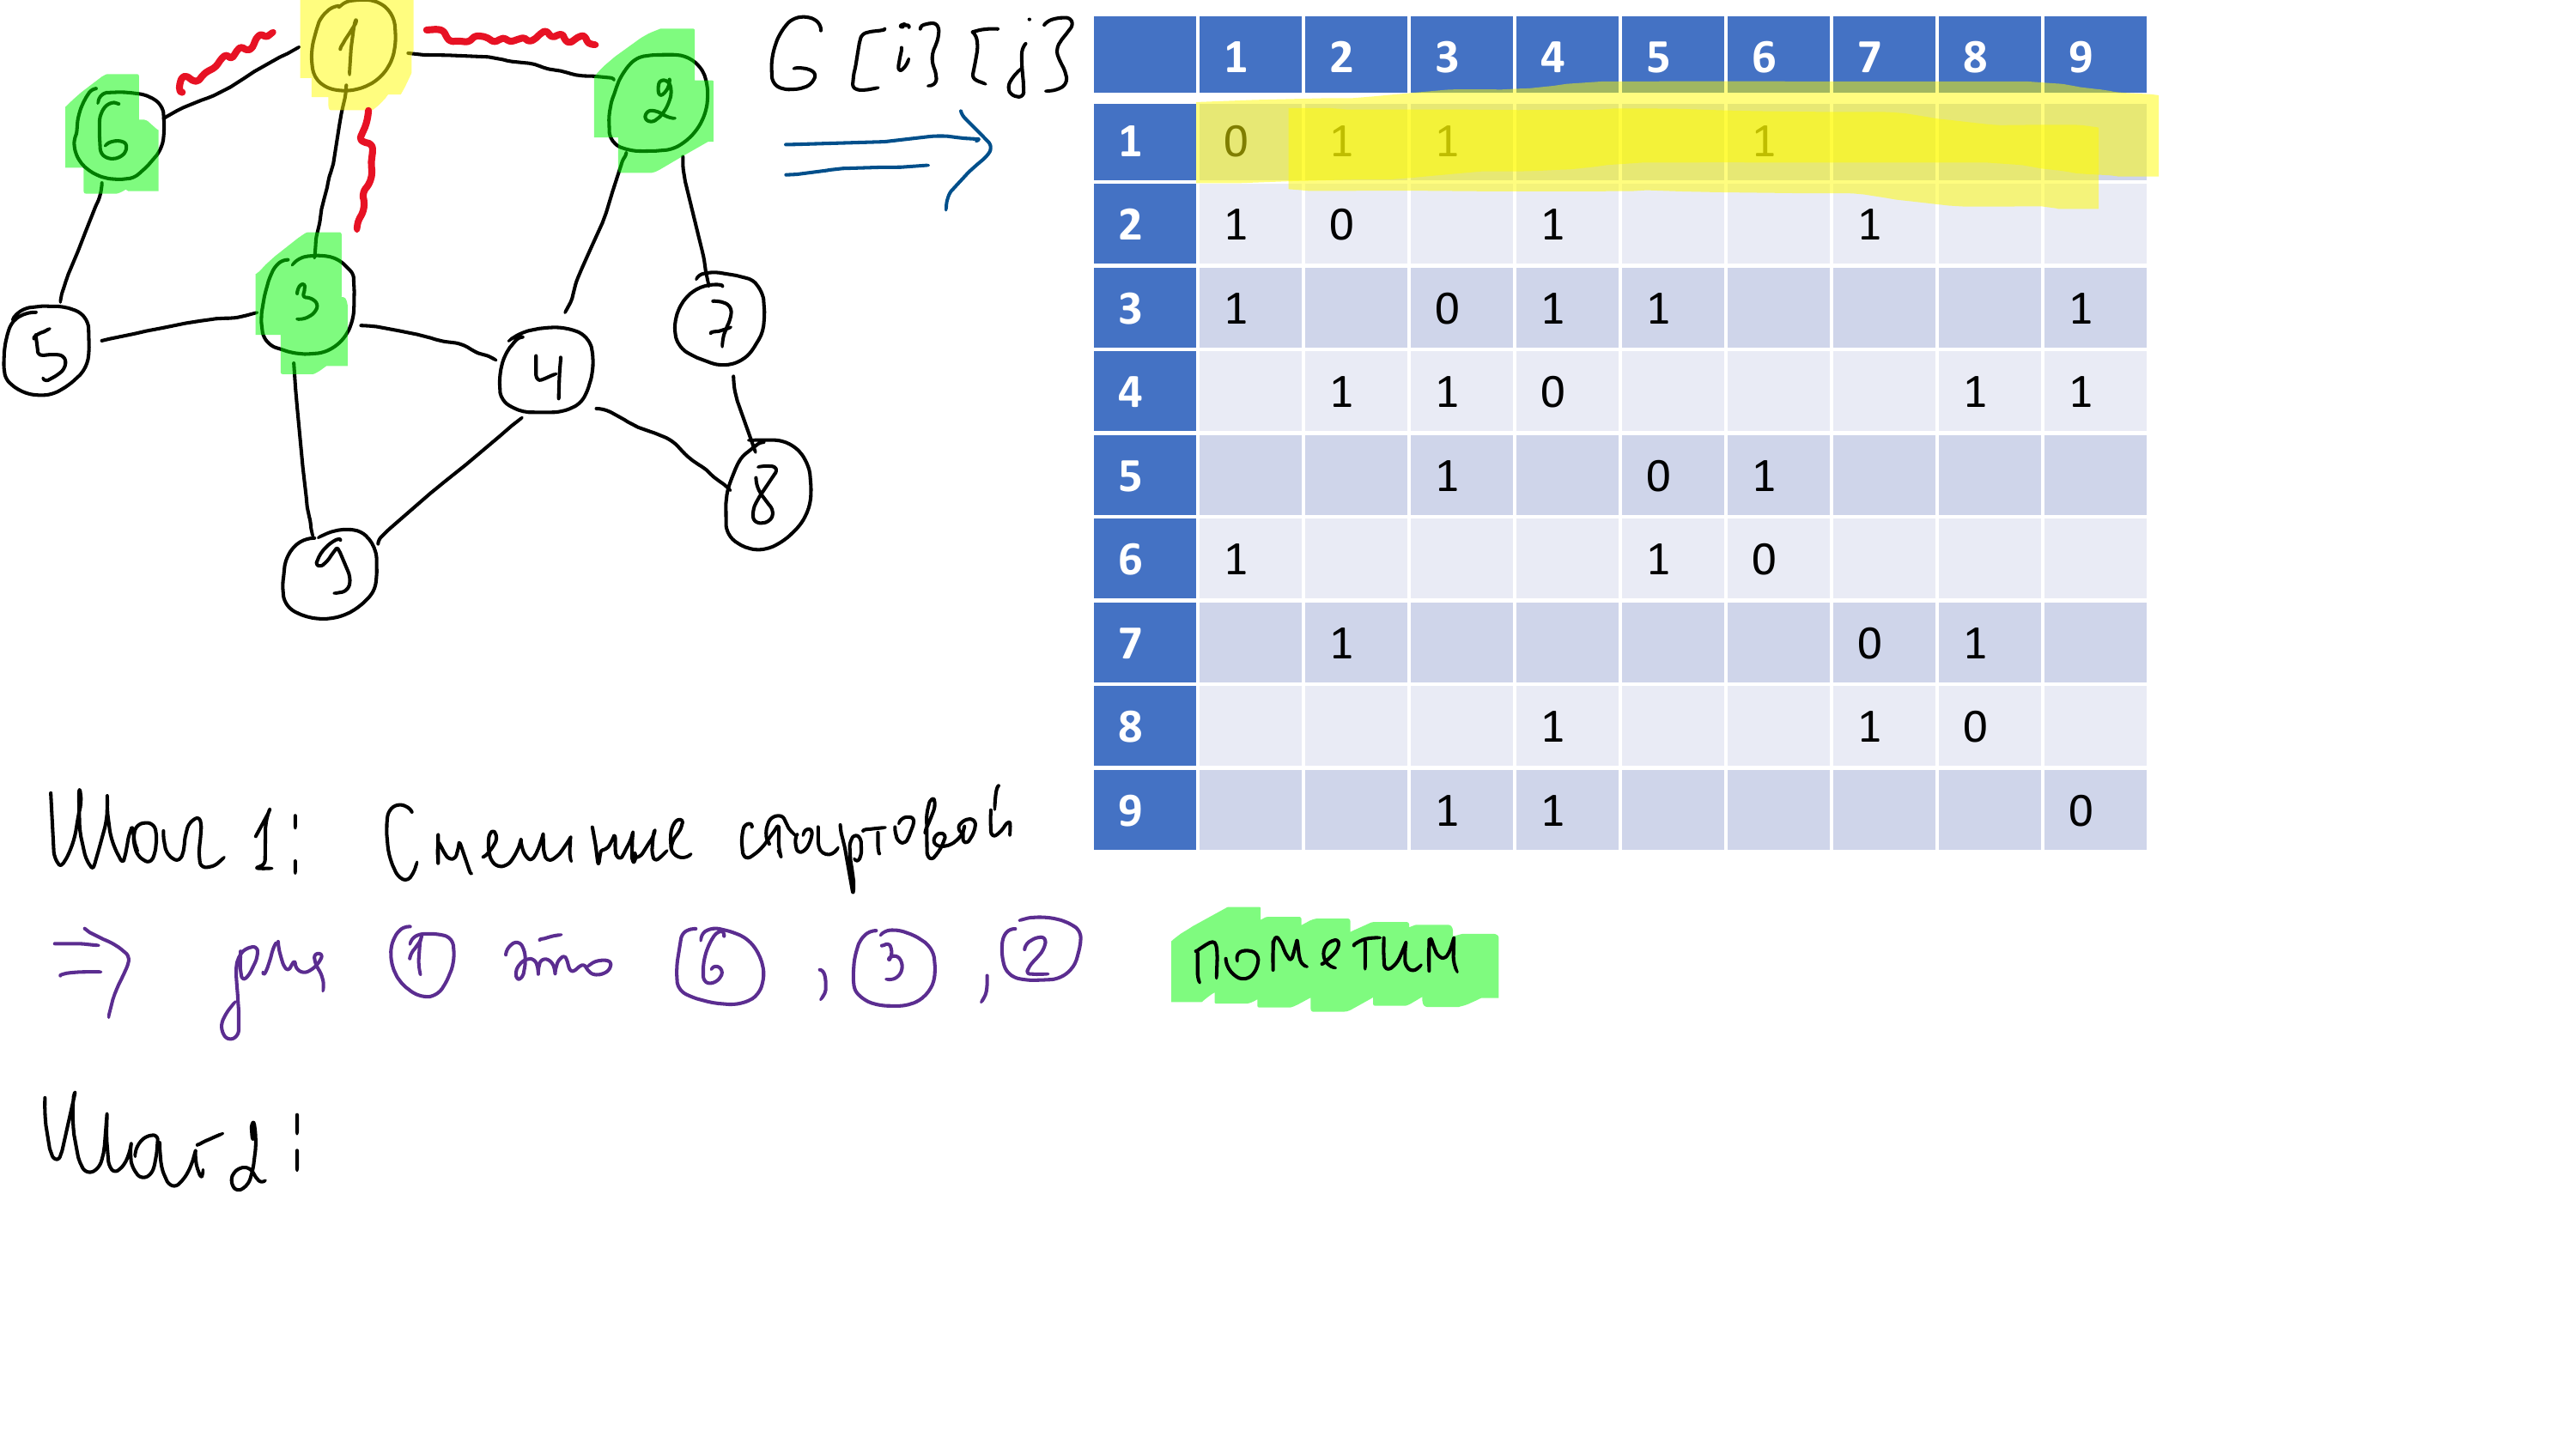 1
6
2
3
5
4
7
8
9
G[i][j]
1 2 3 4 5 6 7 8 9
1 0 1 1 1
2 1 0 1 1
3 1 0 1 1 1
4 1 1 0 1 1
5 1 0 1
6 1 1 0
7 1 0 1
8 1 1 0
9 1 1 0
Шаг 1: Смежные стартовой
⇒ для 1 это 6, 3, 2 пометим
Шаг 2: